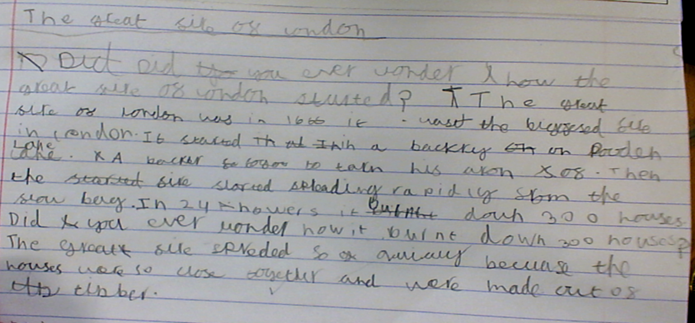 The great fire of london
Did Did you ever wonder how the
great fire of london started? The great
fire of london was in 1666 it wast the biggest fire
in london. It started in a backry on Pooden
Lane. A backer to tarn his aron of. Then
the fire started spreading rapidly from the
bery. In 24 howers it down 300 houses
Did you ever wonder how it burnt down 300 houses?
The great fire spreded so quickly because the
houses were so close together and were made out of
timber.